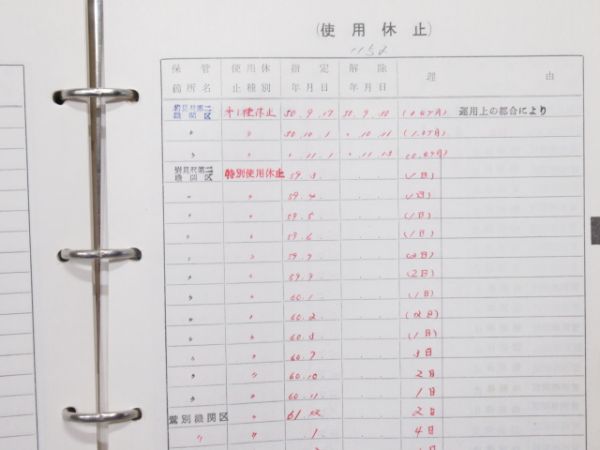 (使用休止)
保管箇所名 使用休止種別 指定年月日 解除年月日 理由
岩見沢第二機関区 オ1種休止 50.9.17 50.9.30 運用上の都合により
〃 〃 50.10.1 〃.10.11
〃 〃 〃.11.1 〃.11.13
岩見沢第二機関区 特別使用休止 59.3. (1日)
〃 〃 59.4. (1日)
〃 〃 59.5. (1日)
〃 〃 59.6. (1日)
〃 〃 59.7.
〃 〃 59.9. (2日)
〃 〃 60.1. (1日)
〃 〃 60.2.
〃 〃 60.3. (1日)
〃 〃 60.9. 3日
〃 〃 60.10. 2日
〃 〃 60.11. 1日
鷲別機関区 〃 61. 2日
〃 〃 1. 4日